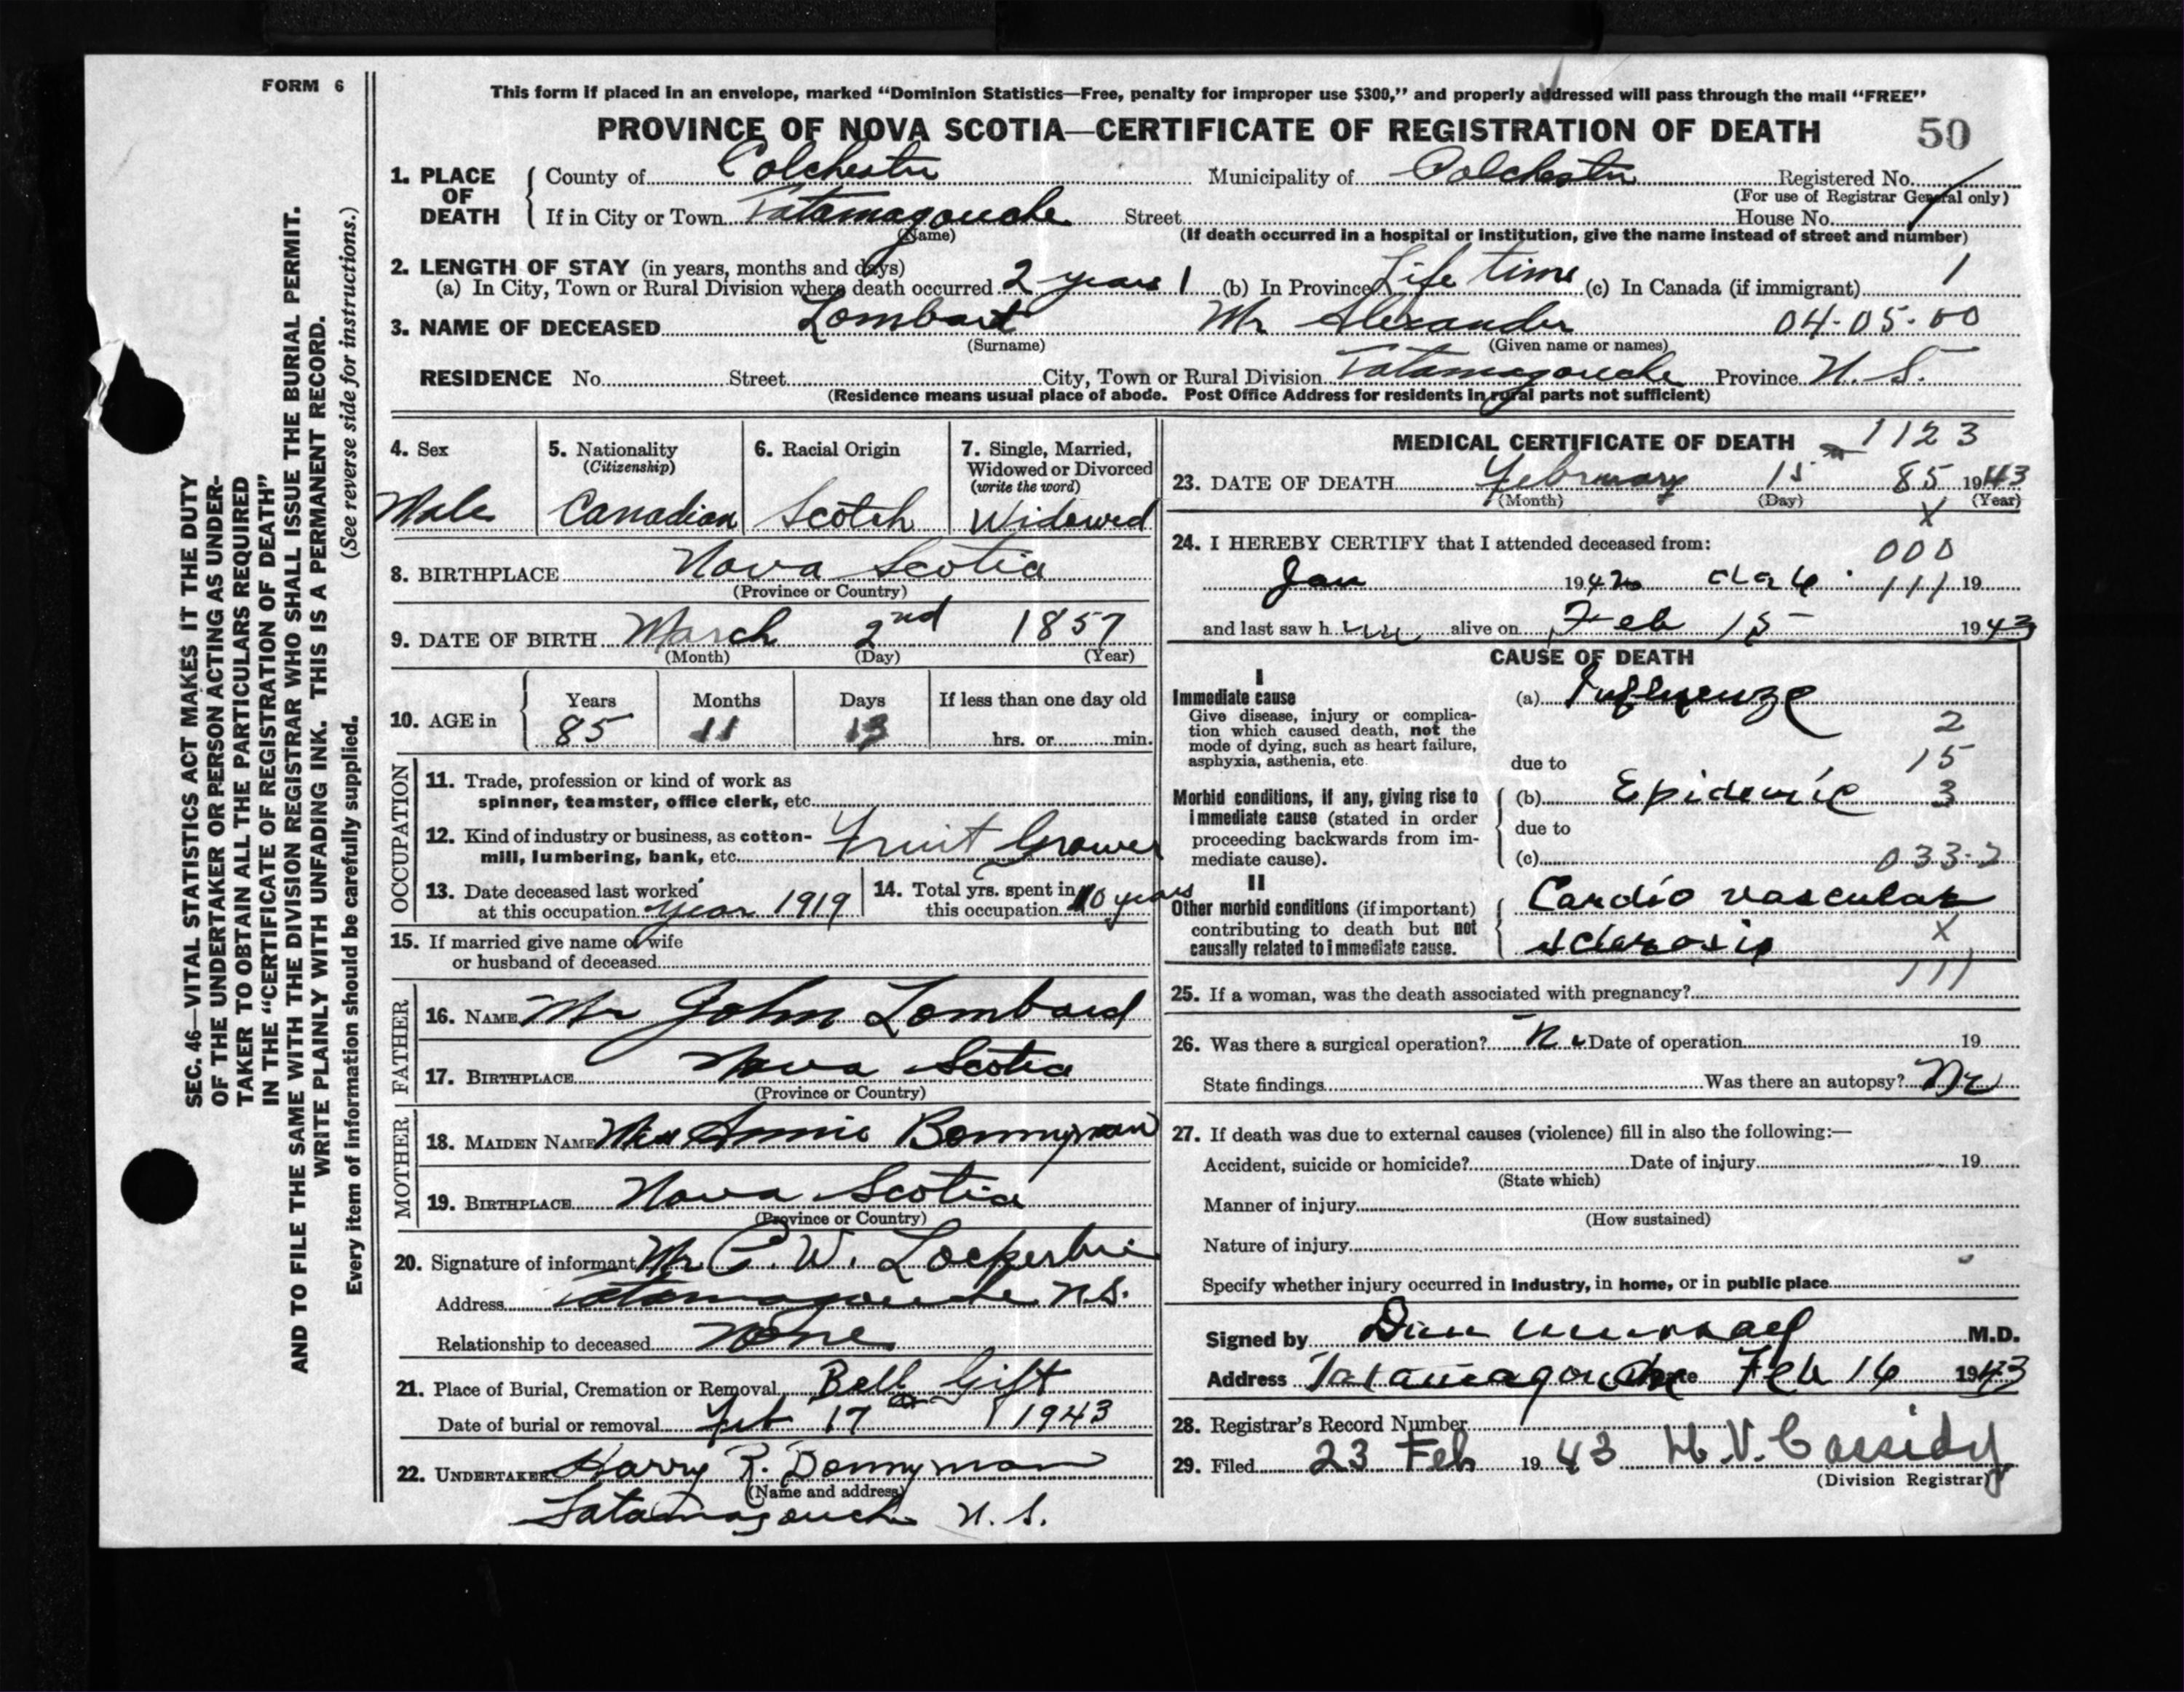 FORM 6
This form if placed in an envelope, marked “Dominion Statistics—Free, penalty for improper use $300,” and properly addressed will pass through the mail “FREE”
PROVINCE OF NOVA SCOTIA—CERTIFICATE OF REGISTRATION OF DEATH 50
1. PLACE OF DEATH
County of Colchester Municipality of Colchester Registered No.
(For use of Registrar General only)
If in City or Town Tatamagouche Street House No.
(Name) (If death occurred in a hospital or institution, give the name instead of street and number)
2. LENGTH OF STAY (in years, months and days)
(a) In City, Town or Rural Division where death occurred 2 years 1 (b) In Province Life time (c) In Canada (if immigrant) 1
3. NAME OF DECEASED Lombard Mr Alexander 04-05-00
(Surname) (Given name or names)
RESIDENCE No. Street City, Town or Rural Division Tatamagouche Province N. S.
(Residence means usual place of abode. Post Office Address for residents in rural parts not sufficient)
SEC. 46—VITAL STATISTICS ACT MAKES IT THE DUTY
OF THE UNDERTAKER OR PERSON ACTING AS UNDER-
TAKER TO OBTAIN ALL THE PARTICULARS REQUIRED
IN THE “CERTIFICATE OF REGISTRATION OF DEATH”
AND TO FILE THE SAME WITH THE DIVISION REGISTRAR WHO SHALL ISSUE THE BURIAL PERMIT.
WRITE PLAINLY WITH UNFADING INK. THIS IS A PERMANENT RECORD.
Every item of information should be carefully supplied. (See reverse side for instructions.)
4. Sex
Male
5. Nationality
(Citizenship)
Canadian
6. Racial Origin
Scotch
7. Single, Married,
Widowed or Divorced
(write the word)
Widowed
8. BIRTHPLACE Nova Scotia
(Province or Country)
9. DATE OF BIRTH March 2nd 1857
(Month) (Day) (Year)
10. AGE in
Years Months Days If less than one day old
85 11 13 hrs. or min.
OCCUPATION
11. Trade, profession or kind of work as
spinner, teamster, office clerk, etc.
12. Kind of industry or business, as cotton-
mill, lumbering, bank, etc. Fruit Grower
13. Date deceased last worked
at this occupation year 1919
14. Total yrs. spent in
this occupation 10 years
15. If married give name of wife
or husband of deceased
FATHER
16. NAME Mr John Lombard
17. BIRTHPLACE Nova Scotia
(Province or Country)
MOTHER
18. MAIDEN NAME Miss Annie Bonnyman
19. BIRTHPLACE Nova Scotia
(Province or Country)
20. Signature of informant Mr C. W. Lockerbie
Address Tatamagouche N.S.
Relationship to deceased None
21. Place of Burial, Cremation or Removal Bell Gift
Date of burial or removal Feb 17 1943
22. UNDERTAKER Harry R. Bonnyman
(Name and address)
Tatamagouche N. S.
MEDICAL CERTIFICATE OF DEATH 1123
23. DATE OF DEATH February 15 85 1943
(Month) (Day) (Year)
X
24. I HEREBY CERTIFY that I attended deceased from:
000
Jan 1942 111 19
and last saw him alive on Feb 15 1943
CAUSE OF DEATH
I
Immediate cause
Give disease, injury or complica-
tion which caused death, not the
mode of dying, such as heart failure,
asphyxia, asthenia, etc.
(a) Influenza
2
due to 15
Morbid conditions, if any, giving rise to
immediate cause (stated in order
proceeding backwards from im-
mediate cause).
(b) Epidemic 3
due to
(c) 033-2
II
Other morbid conditions (if important)
contributing to death but not
causally related to immediate cause.
Cardio vascular
sclerosis X
111
25. If a woman, was the death associated with pregnancy?
26. Was there a surgical operation? No Date of operation 19
State findings Was there an autopsy? No
27. If death was due to external causes (violence) fill in also the following:—
Accident, suicide or homicide? Date of injury 19
(State which)
Manner of injury
(How sustained)
Nature of injury
Specify whether injury occurred in industry, in home, or in public place
Signed by Dan Murray M.D.
Address Tatamagouche Date Feb 16 1943
28. Registrar’s Record Number
29. Filed 23 Feb 1943 H. V. Cassidy
(Division Registrar)